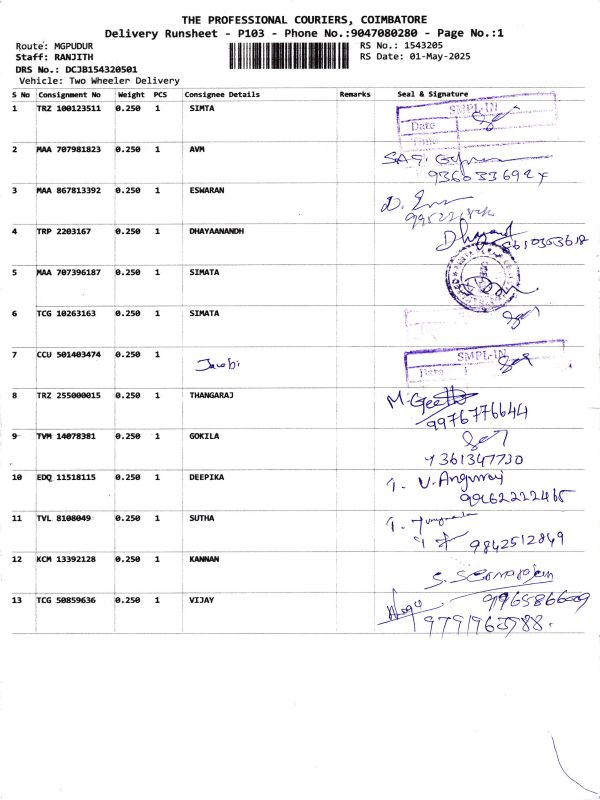 THE PROFESSIONAL COURIERS, COIMBATORE
Delivery Runsheet - P103 - Phone No.:9047080280 - Page No.:1
Route: MGPUDUR RS No.: 1543205
Staff: RANJITH RS Date: 01-May-2025
DRS No.: DCJB154320501
Vehicle: Two Wheeler Delivery
S No Consignment No Weight PCS Consignee Details Remarks Seal & Signature
1 TRZ 100123511 0.250 1 SIMTA SMPL-IN
Date
Time
2 MAA 707981823 0.250 1 AVM
3 MAA 867813392 0.250 1 ESWARAN
4 TRP 2203167 0.250 1 DHAYAANANDH Dhayanand
8610303618
5 MAA 707396187 0.250 1 SIMATA
6 TCG 10263163 0.250 1 SIMATA
7 CCU 501403474 0.250 1 SMPL-IN
Date
8 TRZ 255000015 0.250 1 THANGARAJ M. Geetha
9976776644
9 TVM 14078381 0.250 1 GOKILA
10 EDQ 11518115 0.250 1 DEEPIKA
11 TVL 8108049 0.250 1 SUTHA
9842512849
12 KCM 13392128 0.250 1 KANNAN
13 TCG 50859636 0.250 1 VIJAY